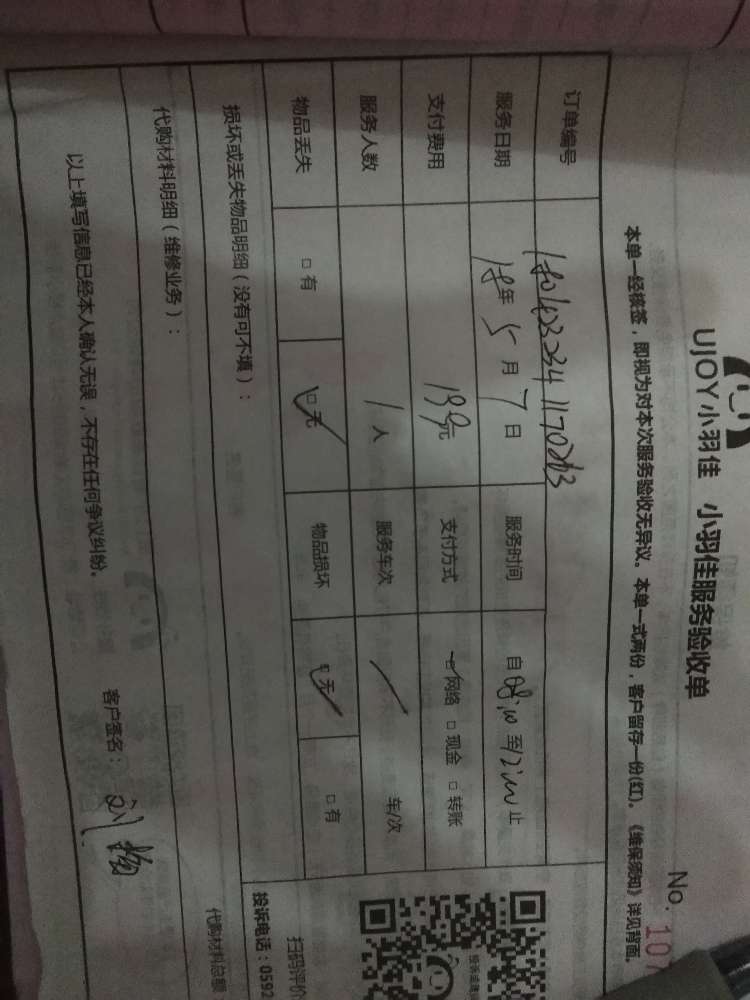 UJOY小羽佳 小羽佳服务验收单
No. 107
本单一经核签，即视为对本次服务验收无异议。本单一式两份，客户留存一份(红)。《维保须知》详见背面。
订单编号
服务日期 18年 5月 7日 服务时间 自08:00至12:00止
支付费用 199元 支付方式 ☑网络 □现金 □转账
服务人数 1人 服务车次 / 车/次
物品丢失 □有 ☑无 物品损坏 ☑无 □有
损坏或丢失物品明细（没有可不填）：
代购材料明细（维修业务）：
代购材料总额
以上填写信息已经本人确认无误，不存在任何争议纠纷。
客户签名：
扫码评价
投诉电话：0592